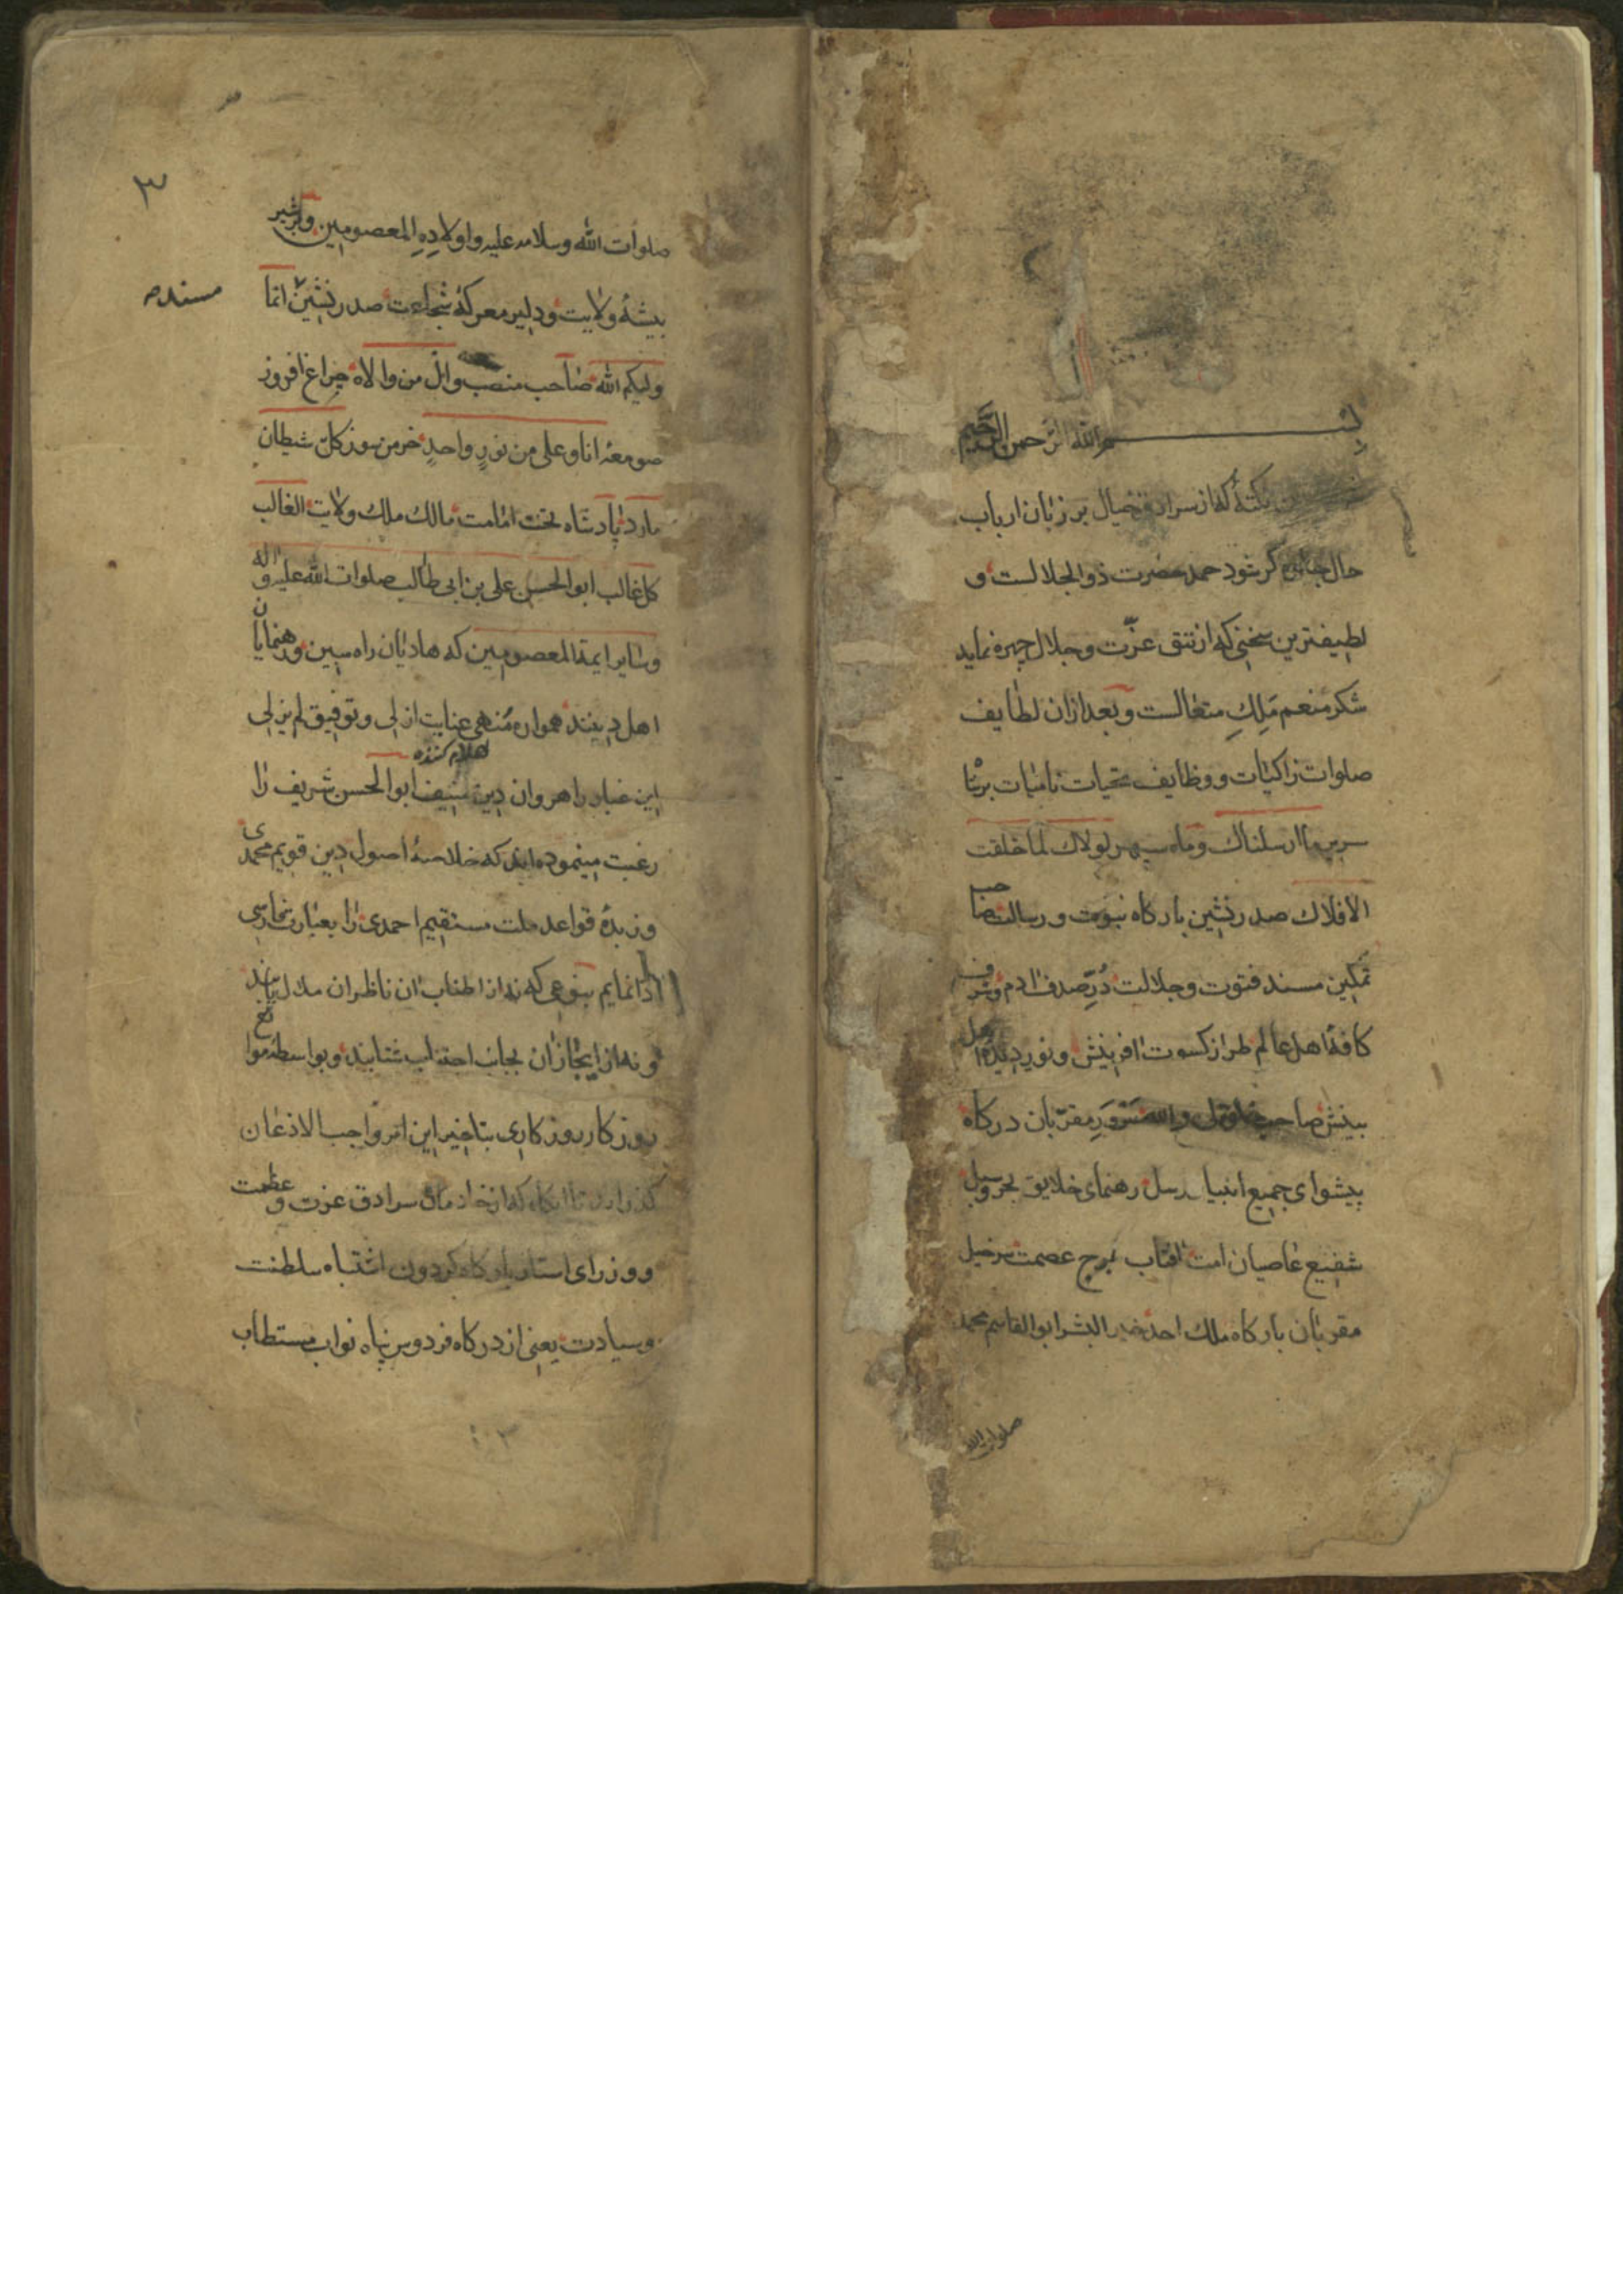 بسم الله الرحمن الرحيم
نكتهٔ كه از سرادق خيال بر زبان ارباب
حال جلوه كر شود حمد حضرت ذو الجلالست و
لطيفترين سخنى كه از تتق عزّت و جلال چهره نمايد
شكر منعم مَلِكِ متعالست و بعد از ان لطايف
صلوات زاكيات و وظايف تحيات ناميات بر شاه
سرير ما ارسلناك و ماه سپهر لولاك لما خلقت
الافلاك صدر نشين باركاه نبوت و رسالت صاحب
تمكين مسند فتوت و جلالت دُرِّ صدف ادم و شرف
كافهٔ اهل عالم طراز كسوت افرينش و نور ديدهٔ اهل
بينش صاحب سَرْوَرِ مقرّبان دركاه
پيشواى جميع انبيا و رسل رهنماى خلايق بحر و سبل
شفيع عاصيان امت افتاب برج عصمت سرخيل
مقربان باركاه ملك احد خير البشر ابو القاسم محمد
صلوات الله
٣
صلوات الله و سلامه عليه و اولادِهِ المعصومين و بر شير
بيشهٔ ولايت و دلير معركهٔ شجاعت صدر نشين انما
مسند
وليكم الله صاحب منصب وال من والاه چراغ افروز
صومعهٔ انا و على من نورٍ واحدٍ خرمن سوز كلّ شيطان
مارد پادشاه تخت امامت مالك ملك ولايت الغالب
كل غالب ابو الحسن على بن ابى طالب صلوات الله عليه و اله
و ساير ايمة المعصومين كه هاديان راه مبين و رهنمايان
اهل دينند همواره مُنهى عنايت ازلى و توفيق لم يزلى
اعلام كننده
اين غبار راهروان دين منيف ابو الحسن شريف را
رغبت مينموده اند كه خلاصهٔ اصول دين قويم محمدى
و زبدهٔ قواعد ملت مستقيم احمدى را بعبارت فارسى
ادا نمايم بنوعى كه نه از اطناب ان ناظران ملال يابند
و نه از ايجاز ان بجانب اجتناب شتابند و بواسطهٔ موانع
روزكار روزكارى بتاخير اين امر واجب الاذعان
كذرانيد تا انكاه كه از خادمان سرادق عزت و عظمت
و وزراى استان باركاه كردون اشتباه سلطنت
و سيادت يعنى از دركاه فردوس پناه نواب مستطاب